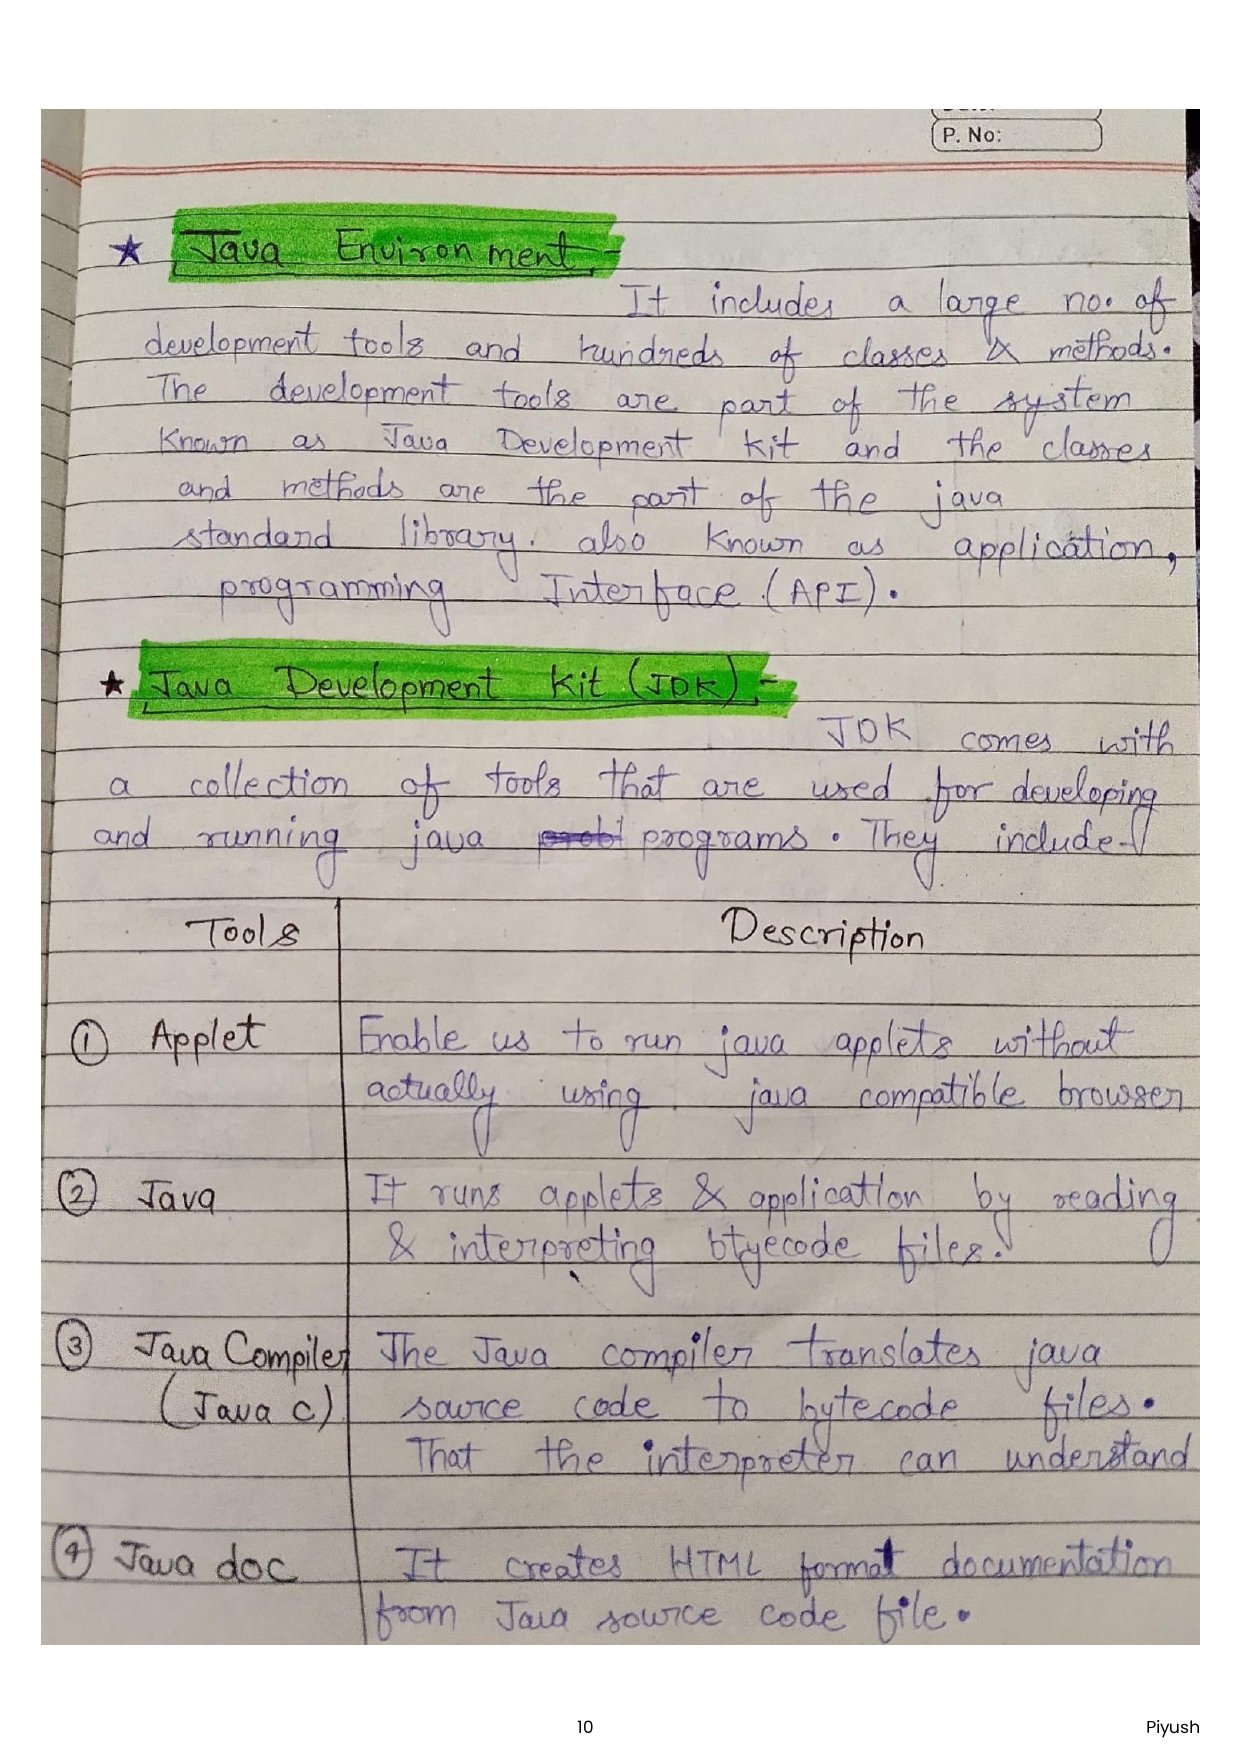 P. No:
★ Java Environment :-
It includes a large no. of
development tools and hundreds of classes & methods.
The development tools are part of the system
Known as Java Development Kit and the classes
and methods are the part of the java
standard library. also known as application,
programming Interface (API).
★ Java Development Kit (JDK) :-
JDK comes with
a collection of tools that are used for developing
and running java programs. They include-
Tools Description
① Applet Enable us to run java applets without
actually using java compatible browser
② Java It runs applets & application by reading
& interpreting btyecode files.
③ Java Compiler The Java compiler translates java
(Java c) source code to bytecode files.
That the interpreter can understand
④ Java doc It creates HTML format documentation
from Java source code file.
10 Piyush